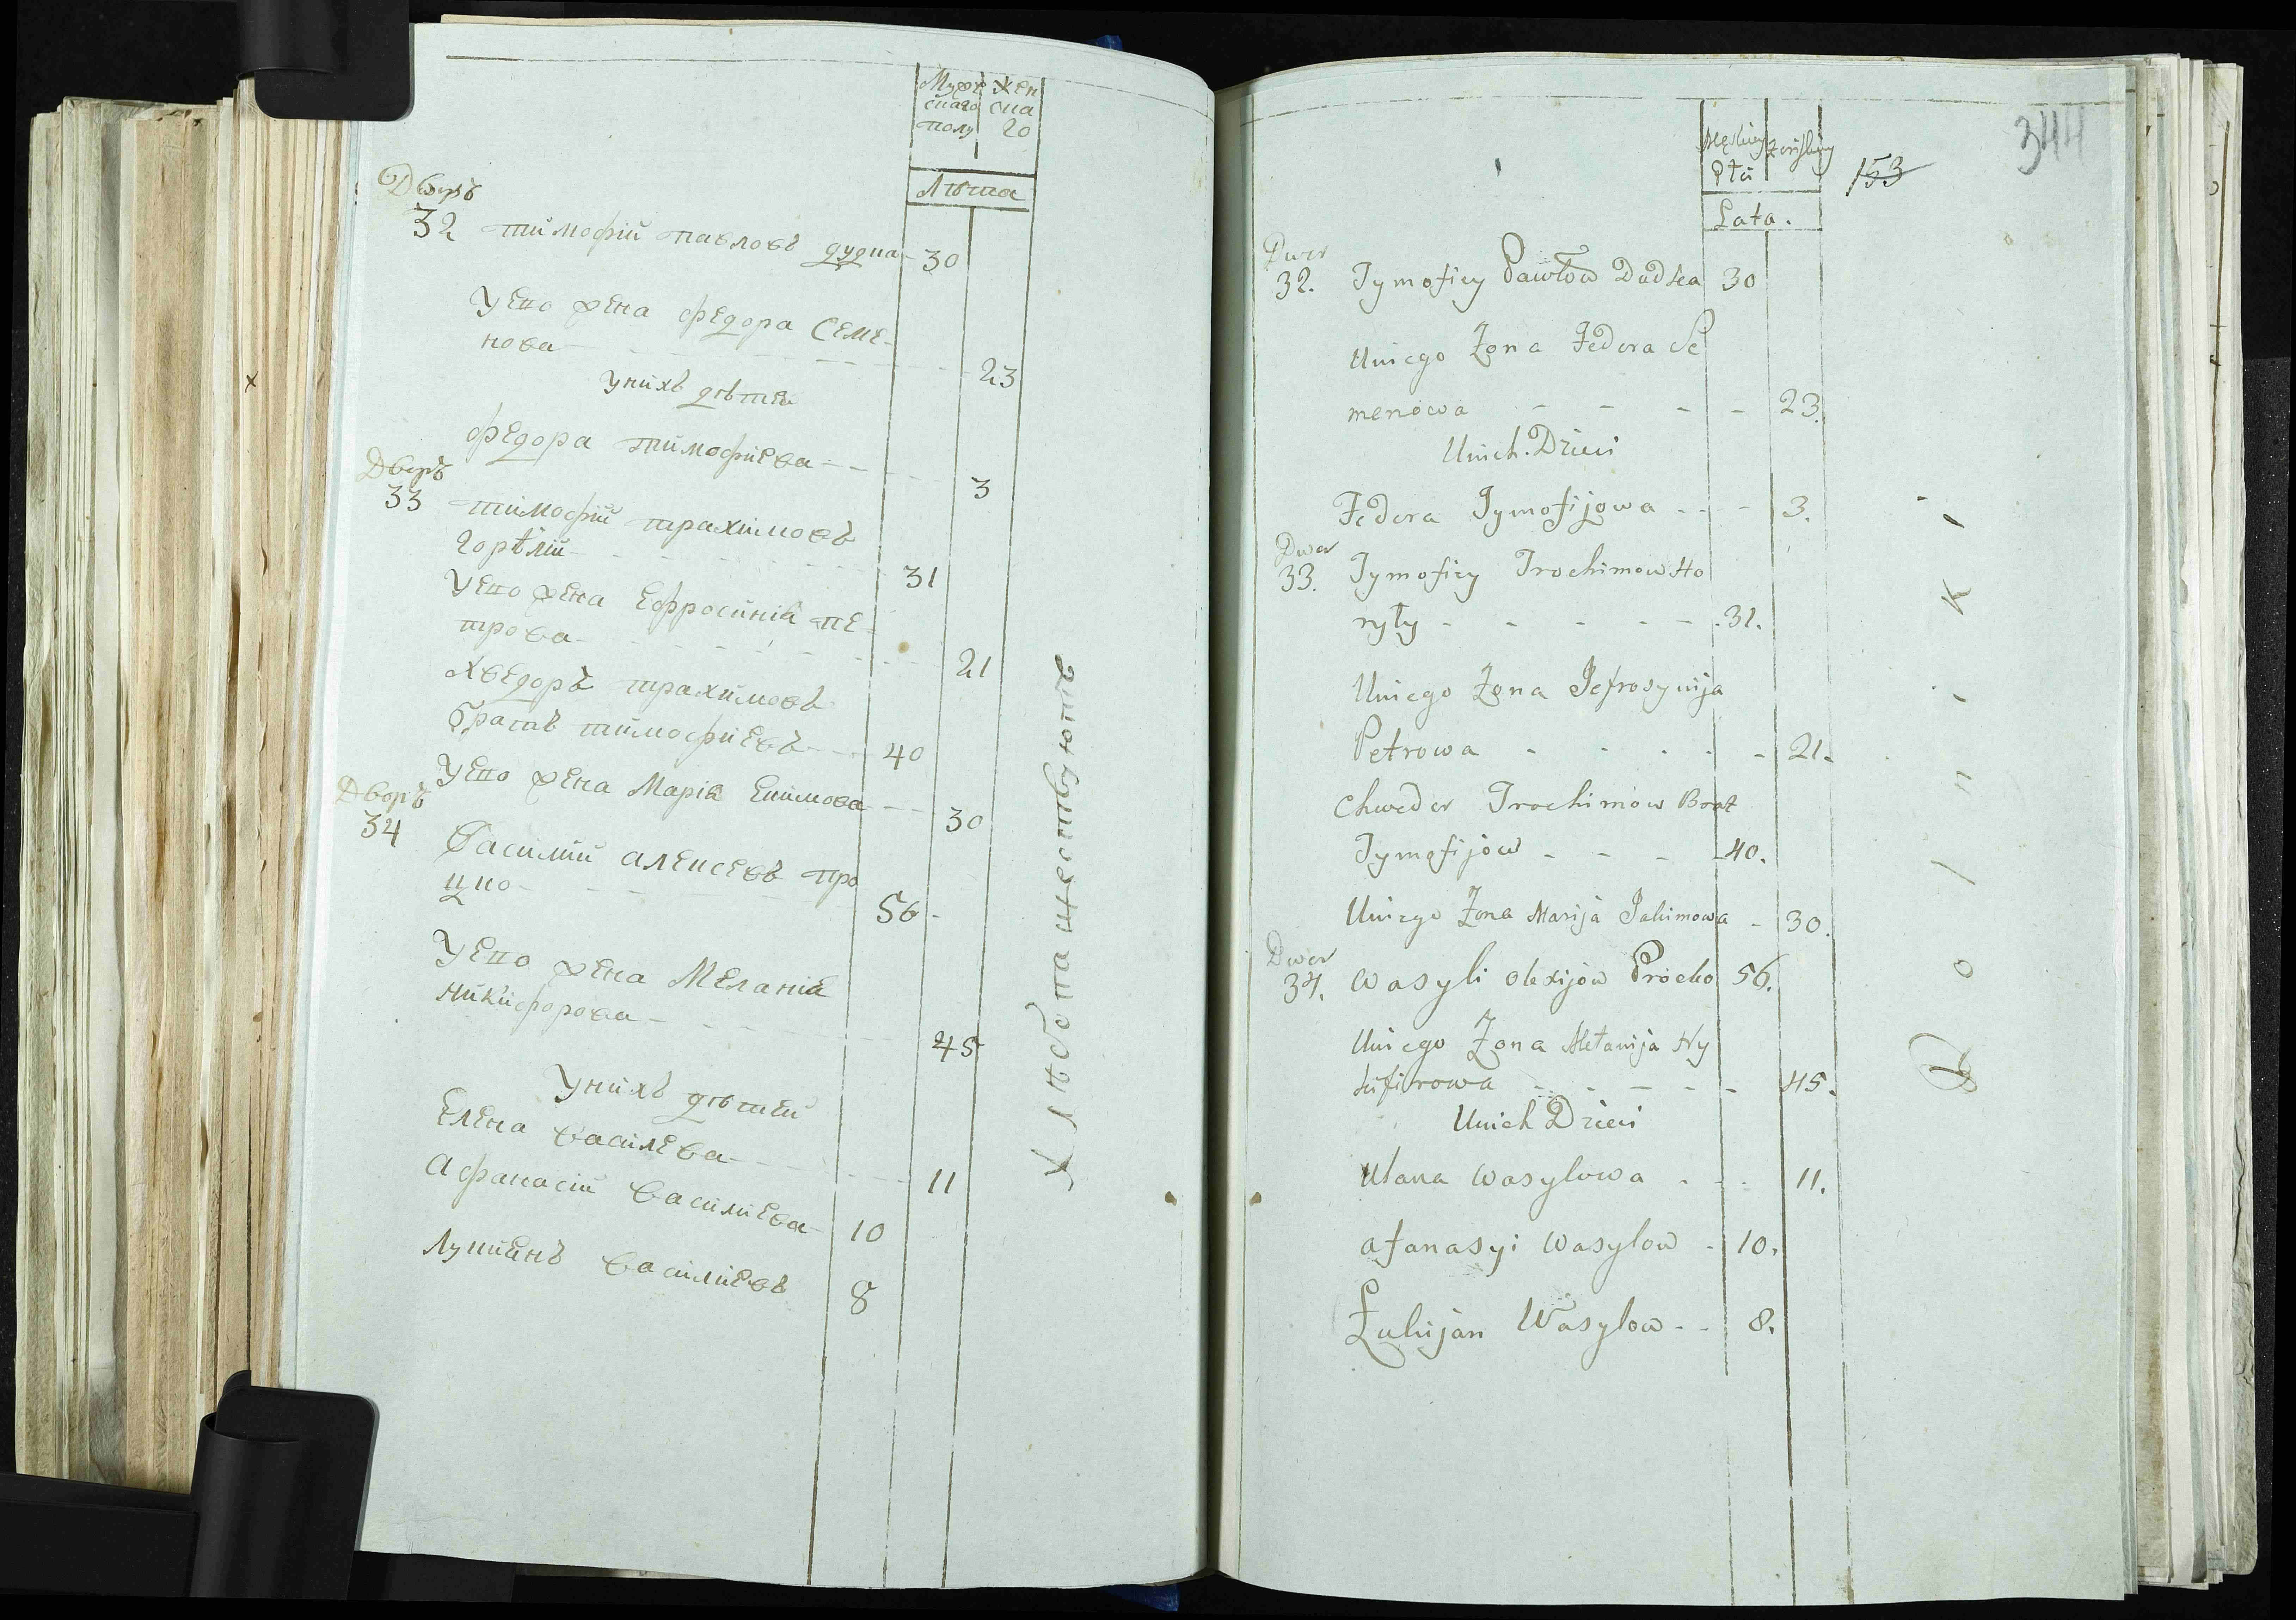 Муже Жен
скаго ска
полу го
Лѣта
Дворъ
32 тимофiй павловъ дудка 30
У Его жена федора Семе-
нова 23
У нихъ дѣтей
федора тимофiева 3
Дворъ
33 тимофiй трахимовъ
горѣлiй 31
У Его жена Ефросинiя пе-
трова 21
Хведоръ трахимовъ
братъ тимофiевъ 40
У Его жена Марiя Екимова 30
Дворъ
34 Василiй алексеевъ про
цко 56
У Его жена Меланiя
Никифорова 45
У нихъ дѣтей
Елена василева 11
Афанасiй василиева 10
Лукиянъ василиевъ 8
Хлѣбопаществуютъ
344
153
Męskiey Żeńskiey
Płci
Lata.
Dwor
32. Tymofiey Pawłow Dudka 30
Uniego Żona Fedora Se
menowa - - - - 23.
Unich Dzieci
Fedora Tymofijowa - - - 3.
Dwor
33. Tymofiey Trochimow Ho
ryły - - - - - 31.
Uniego Żona Jefrosynija
Petrowa - - - - - 21.
Chwedor Trochimow Brat
Tymofijow - - - 40.
Uniego Żona Marija Jakimowa - 30.
Dwor
34. Wasyli Olexijow Procko 56.
Uniego Żona Mełanija Ny
kifirowa - - - - - 45.
Unich Dzieci
Ulana Wasylowa - - - 11.
Afanasyi Wasylow - 10.
Łukijan Wasylow - - 8.
Rolniki